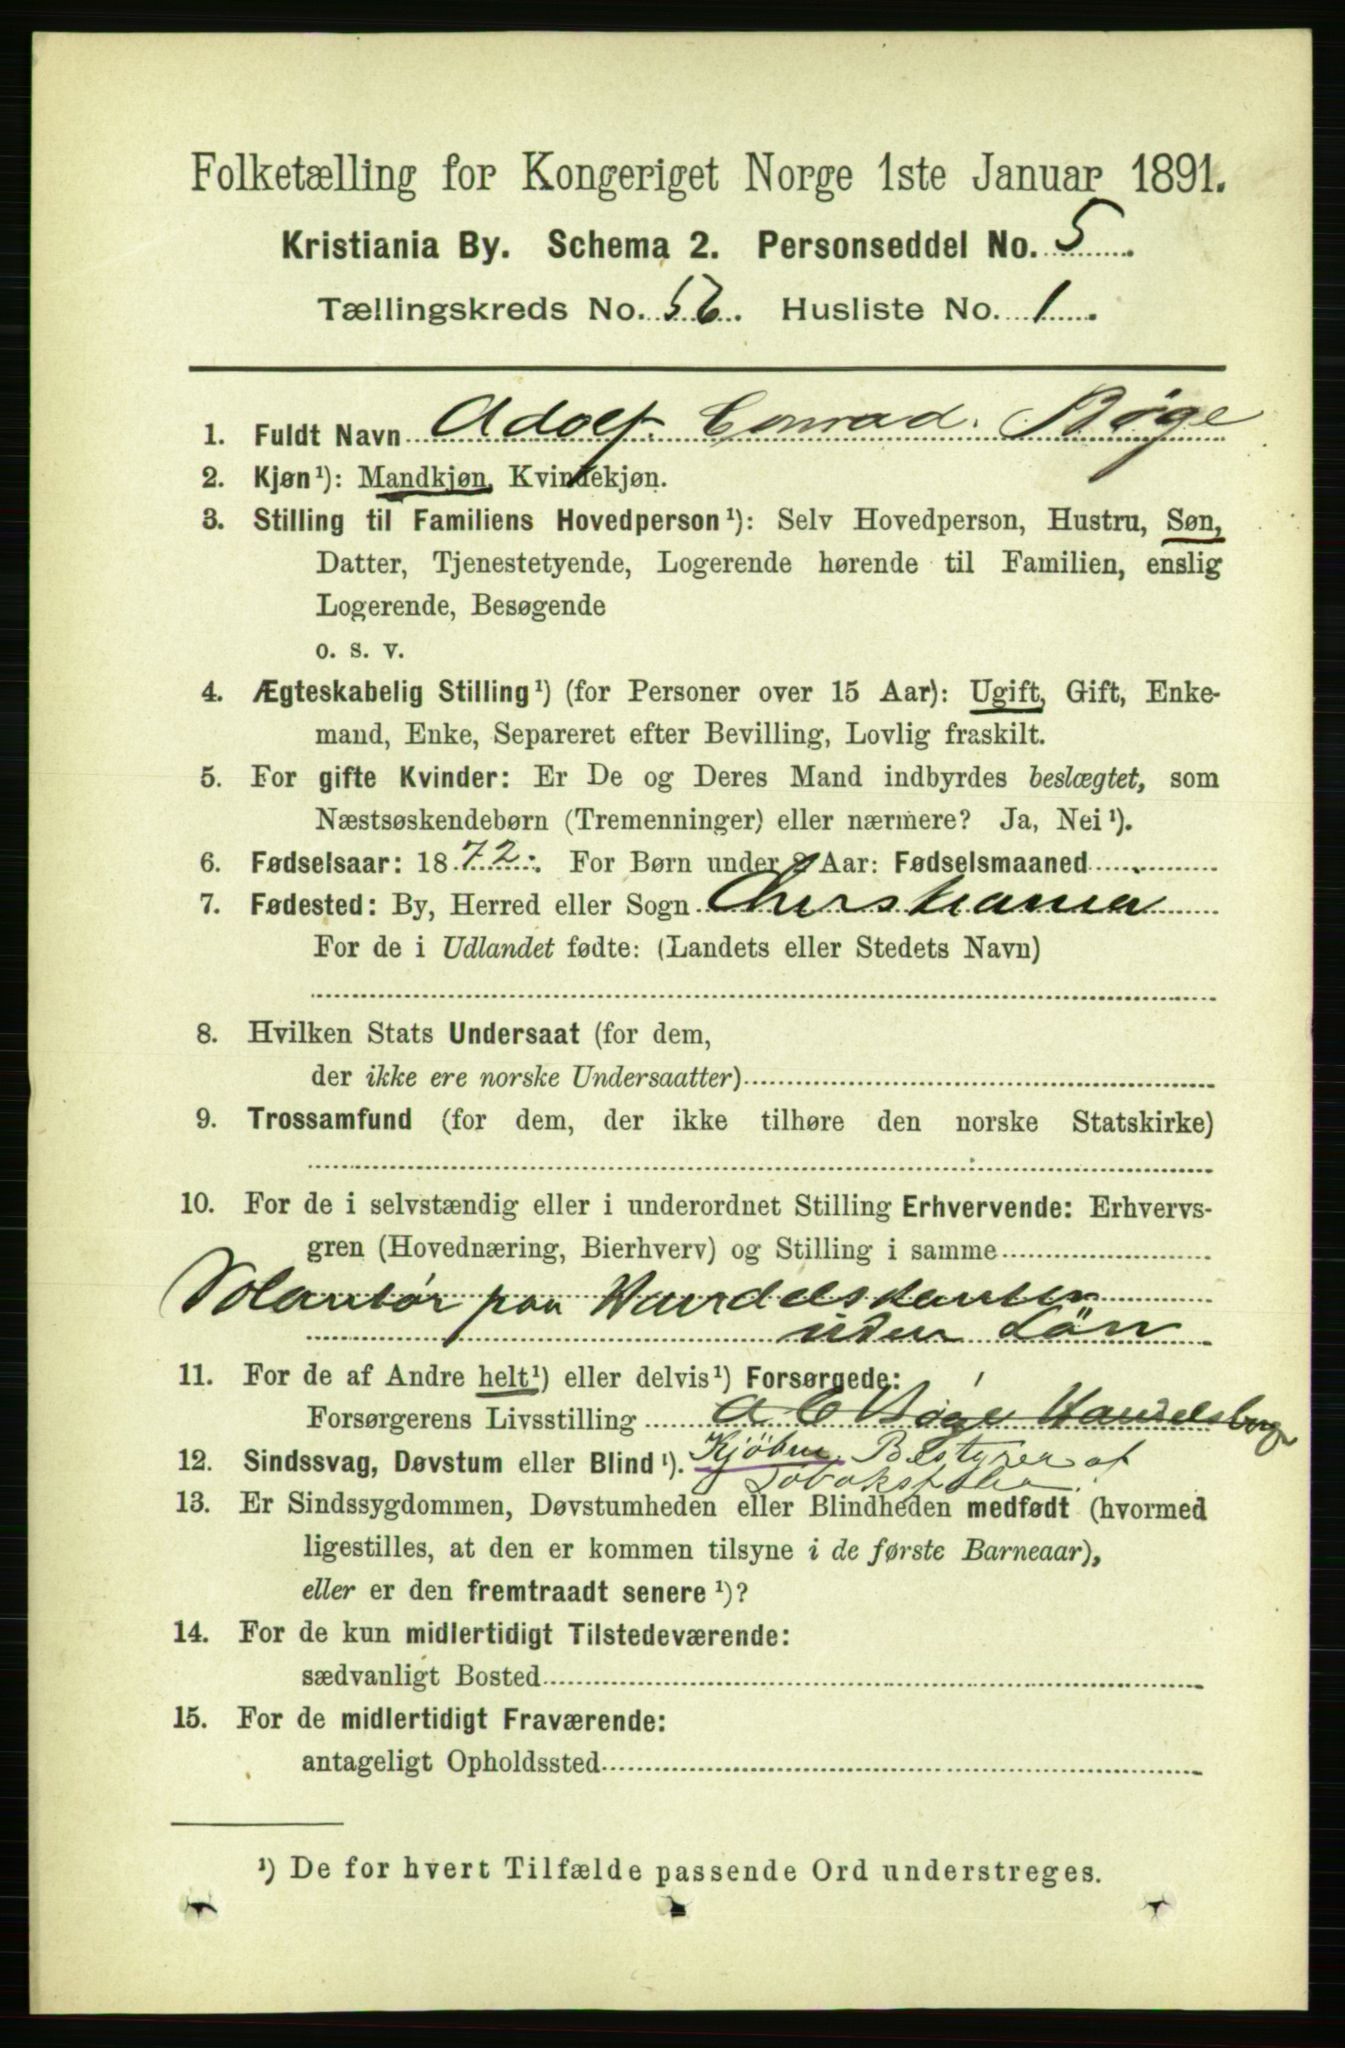 Folketælling for Kongeriget Norge 1ste Januar 1891.
Kristiania By. Schema 2. Personseddel No. 5
Tællingskreds No. 56. Husliste No. 1
1. Fuldt Navn Adolf Conrad Bøge
2. Kjøn¹): Mandkjøn, Kvindekjøn.
3. Stilling til Familiens Hovedperson¹): Selv Hovedperson, Hustru, Søn,
Datter, Tjenestetyende, Logerende hørende til Familien, enslig
Logerende, Besøgende
o. s. v.
4. Ægteskabelig Stilling¹) (for Personer over 15 Aar): Ugift, Gift, Enke-
mand, Enke, Separeret efter Bevilling, Lovlig fraskilt.
5. For gifte Kvinder: Er De og Deres Mand indbyrdes beslægtet, som
Næstsøskendebørn (Tremenninger) eller nærmere? Ja, Nei¹).
6. Fødselsaar: 1872. For Børn under 2 Aar: Fødselsmaaned
7. Fødested: By, Herred eller Sogn Christiania
For de i Udlandet fødte: (Landets eller Stedets Navn)
8. Hvilken Stats Undersaat (for dem,
der ikke ere norske Undersaatter)
9. Trossamfund (for dem, der ikke tilhøre den norske Statskirke)
10. For de i selvstændig eller i underordnet Stilling Erhvervende: Erhvervs-
gren (Hovednæring, Bierhverv) og Stilling i samme
Volantør paa Handelskontor
uden Løn
11. For de af Andre helt¹) eller delvis¹) Forsørgede:
Forsørgerens Livsstilling A C Bøge Handelsborg
12. Sindssvag, Døvstum eller Blind¹). Kjøbm. Bestyrer af
Tobaks
13. Er Sindssygdommen, Døvstumheden eller Blindheden medfødt (hvormed
ligestilles, at den er kommen tilsyne i de første Barneaar),
eller er den fremtraadt senere¹)?
14. For de kun midlertidigt Tilstedeværende:
sædvanligt Bosted
15. For de midlertidigt Fraværende:
antageligt Opholdssted
¹) De for hvert Tilfælde passende Ord understreges.